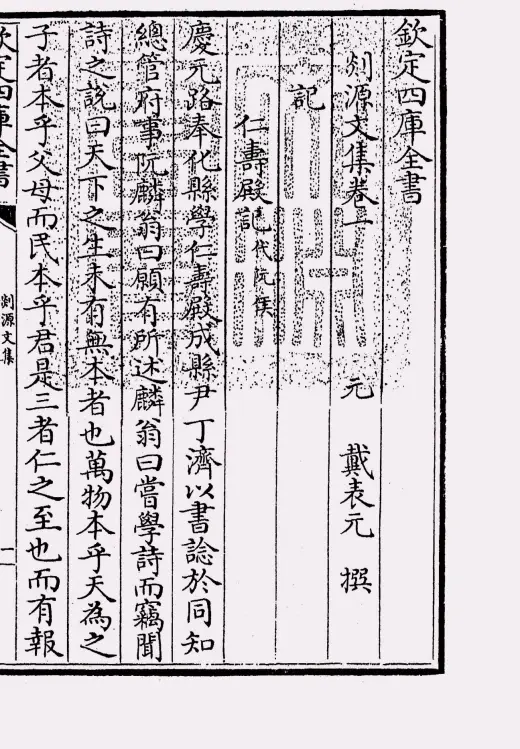 欽定四庫全書
剡源文集卷一
元 戴表元 撰
記
仁壽殿記代阮侯
慶元路奉化縣學仁壽殿成縣尹丁濟以書諗於同知
總管府事阮麟翁曰願有所述麟翁曰嘗學詩而竊聞
詩之說曰天下之生未有無本者也萬物本乎天為之
子者本乎父母而民本乎君是三者仁之至也而有報
欽定四庫全書
剡源文集